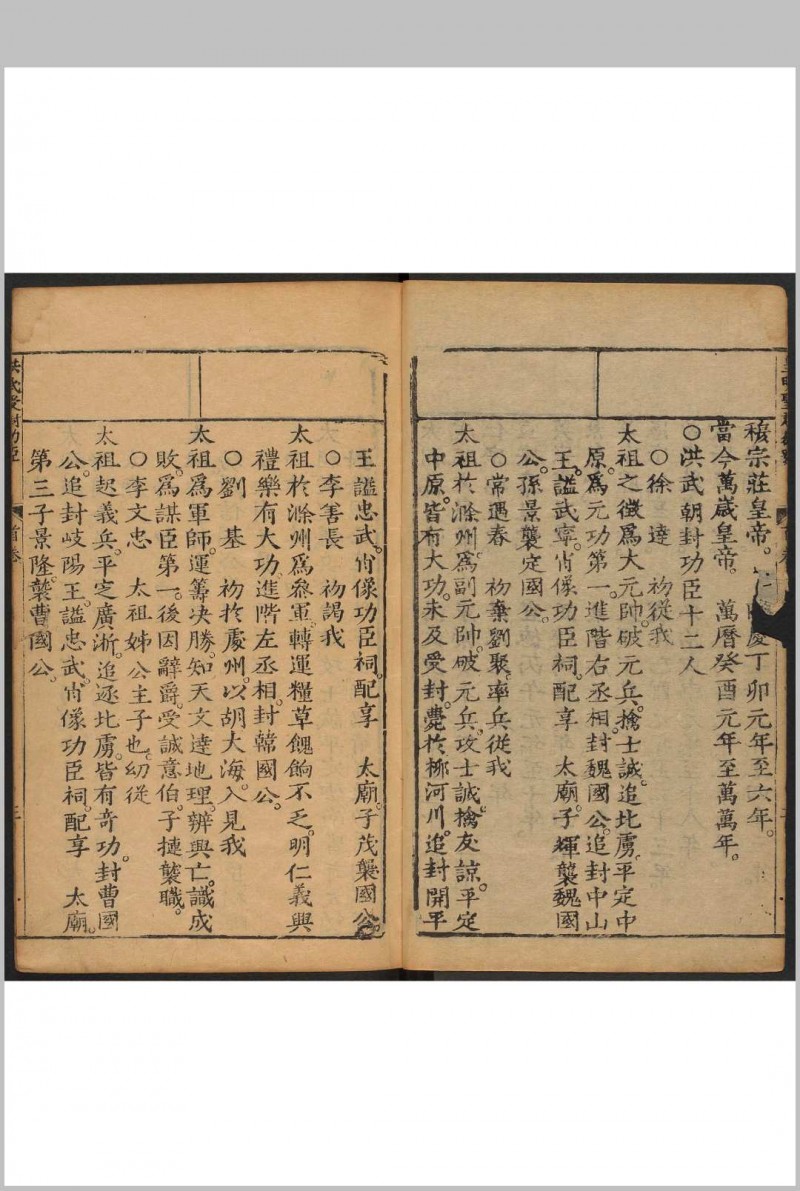 穆宗莊皇帝。隆慶丁卯元年至六年。
當今萬歲皇帝。　萬曆癸酉元年至萬萬年。
○洪武朝封功臣十二人
○徐　達　初從我
太祖之徵爲大元帥。破元兵。擒士誠。追北虜。平定中
原。爲元功第一。進階右丞相。封魏國公。追封中山
王。謚武寧。肖像功臣祠。配享　太廟。子輝襲魏國
公。孫景襲定國公。
○常遇春　初棄劉聚。率兵從我
太祖於滁州。爲副元帥。破元兵。攻士誠。擒友諒。平定
中原。皆有大功。未及受封。薨於柳河川。追封開平
王。謚忠武。肖像功臣祠。配享　太廟。子茂襲國公。
○李善長　初謁我
太祖於滁州。爲叅軍。轉運糧草餽餉不乏。明仁義興
禮樂有大功。進階左丞相。封韓國公。
○劉　基　初於處州。以胡大海。入見我
太祖爲軍師。運籌决勝。知天文達地理。辨興亡。識成
敗。爲謀臣第一。後因辭爵。受誠意伯。子璉襲職。
○李文忠　太祖姊公主子也。幼從
太祖起義兵。平定廣淅。追逐北虜。皆有奇功。封曹國
公。追封岐陽王。謚忠武。肖像功臣祠。配享　太廟。
第三子景隆。襲曹國公。
首卷